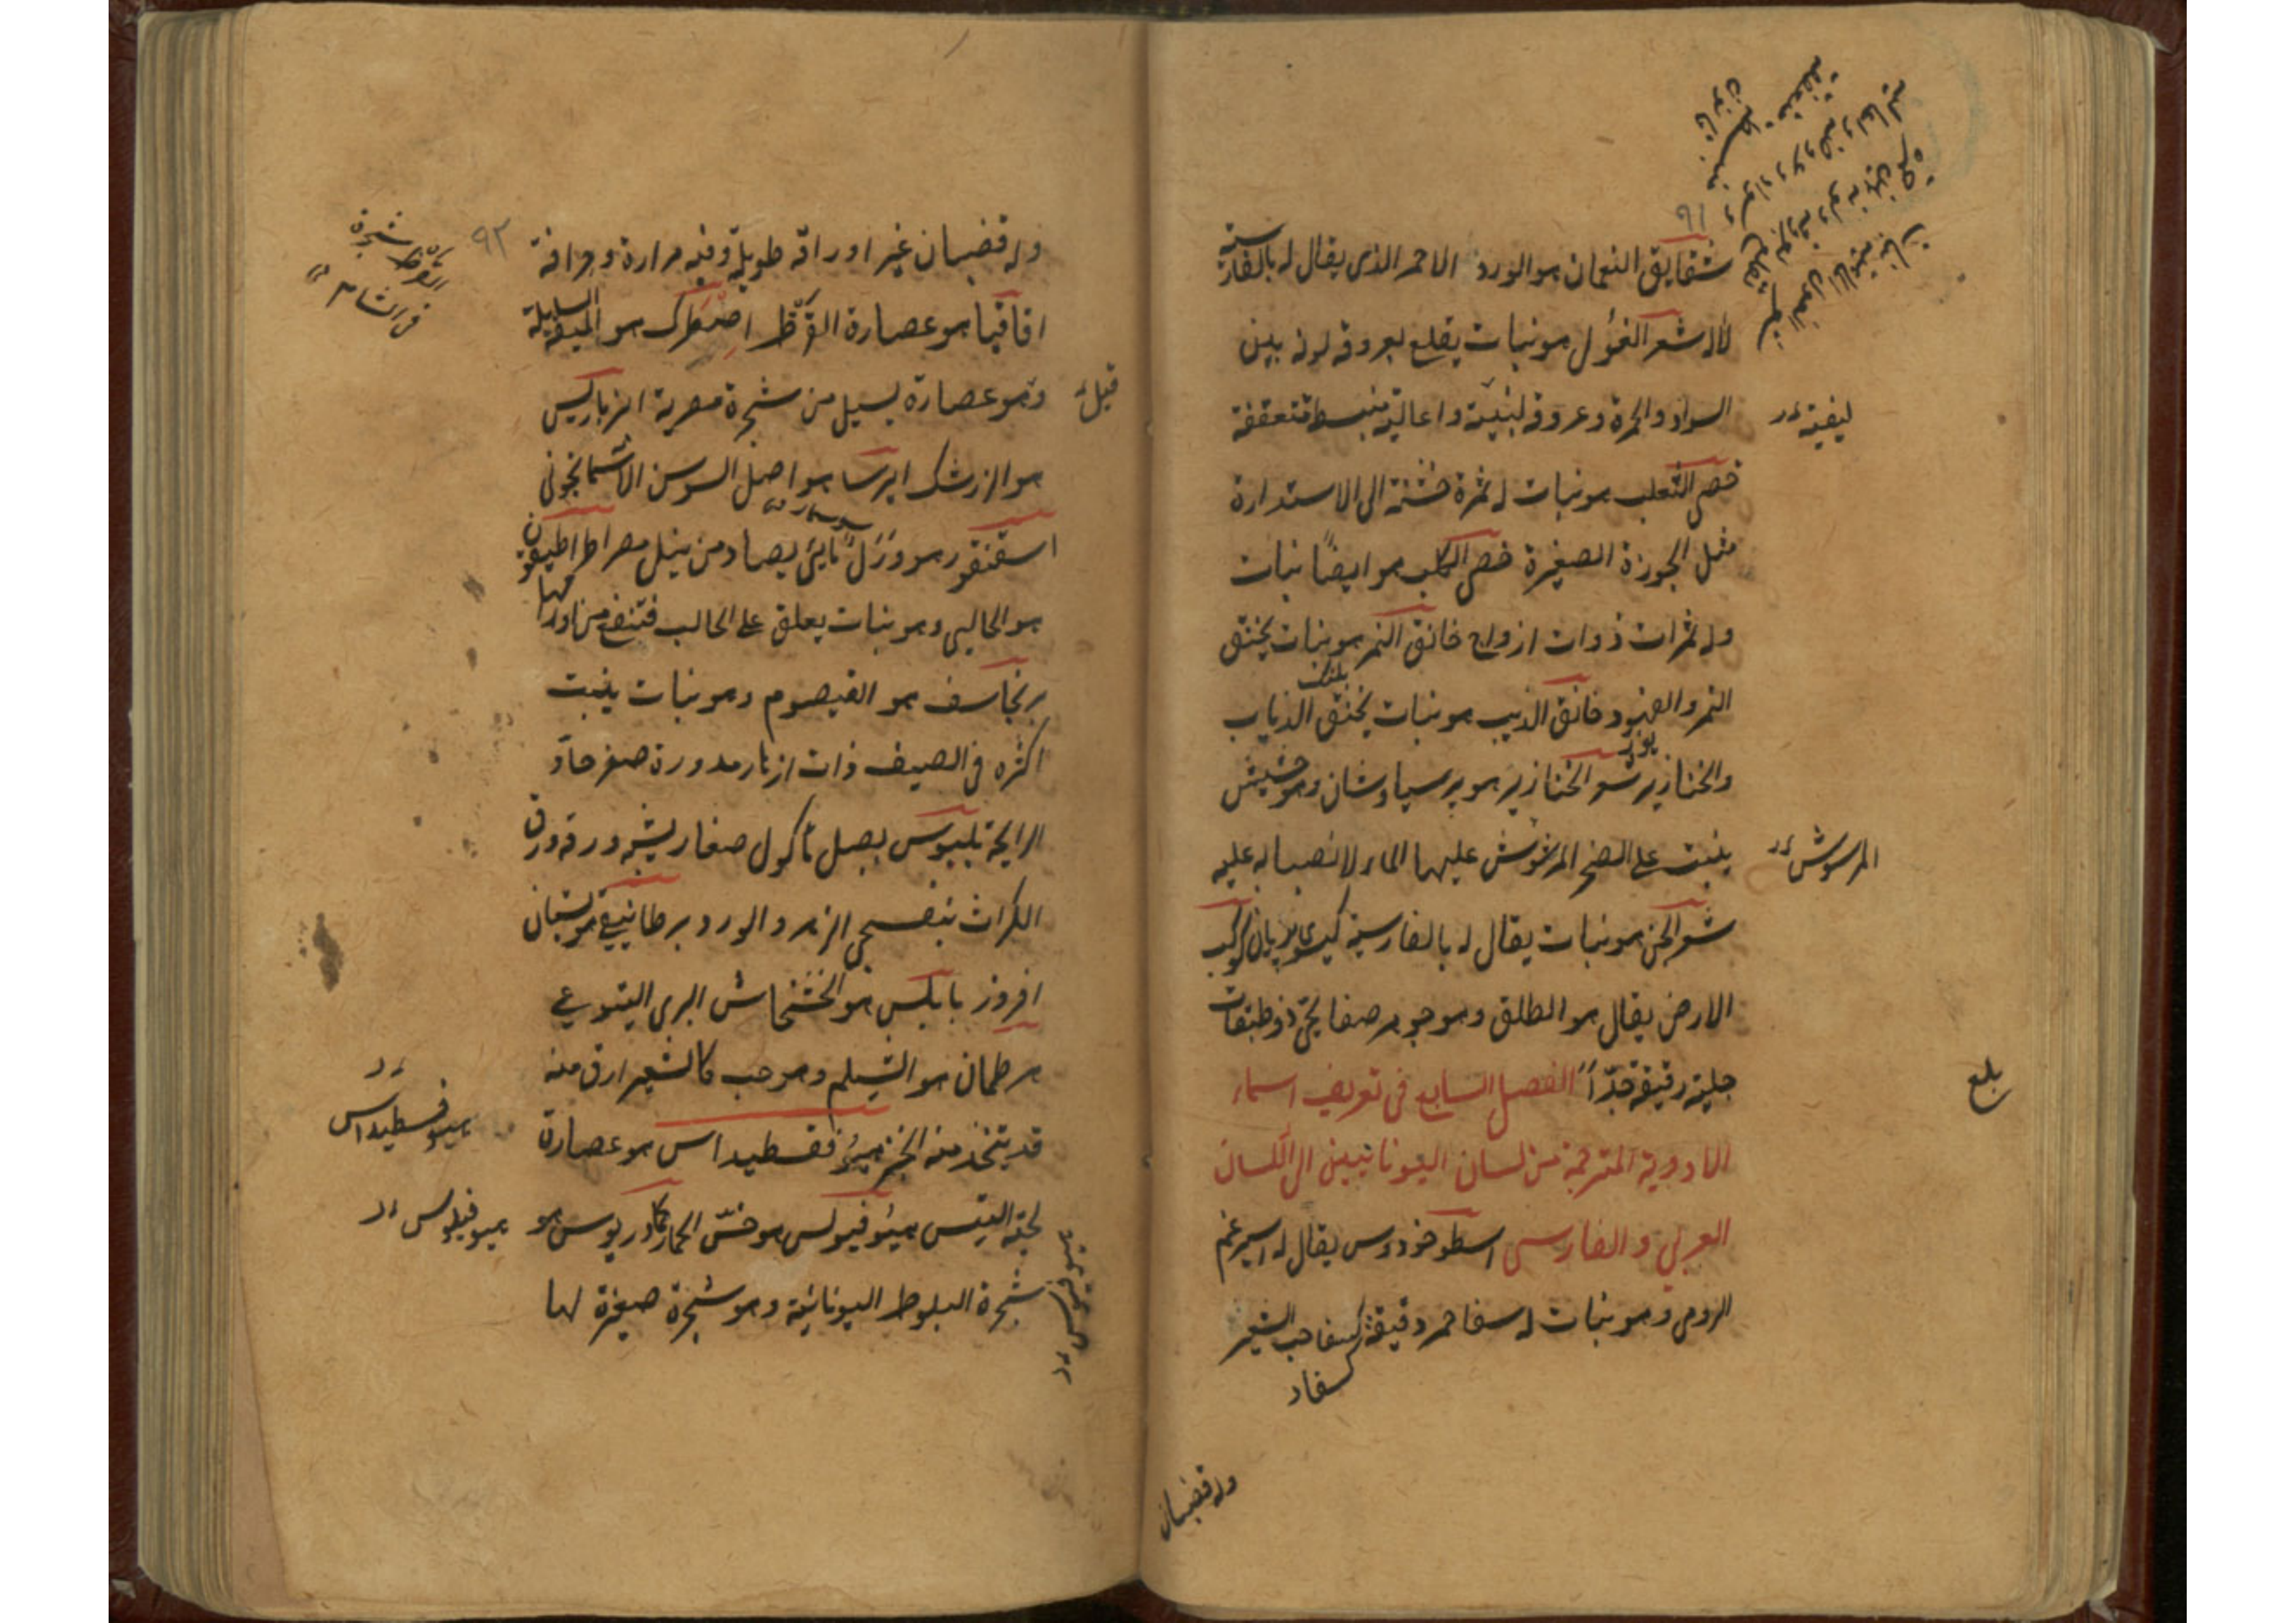 ٩١
شقايق النعمان هو الورد الاحمر الذى يقال له بالفارسية
لاله شعر الغول هو نبات يقلع بعروقه لونه بين
السواد والحمرة وعروقه لبنية واعاليه منبسطة متعقفة
ليفية
خصى الثعلب هو نبات له ثمرة خشنة الى الاستدارة
مثل الجوزة الصغيرة خصى الكلب هو ايضًا نبات
وله ثمرات ذوات ازواج خانق النمر هو نبات يخنق
پلنگ
النمر والفهود خانق الذيب هو نبات يخنق الذياب
يوز
والخنازير شعر الخنازير هو برسياوشان وهو حشيش
ينبت على الصخر المرشوش عليها الماء لانصبابه عليه
المرسوش
شعر الجن هو نبات يقال له بالفارسية كيسوى پريان كوكب
الارض يقال هو الطلق وهو جوهر صفايحى ذو طبقات
جلية رقيقة جدّاً الفصل السابع فى تعريف اسماء
بلغ
الادوية المترجمة من لسان اليونانيين الى اللسان
العربي و الفارسى اسطوخودوس يقال له اسپرغم
الرومى وهو نبات له سفا حمر دقيقة كسفا حب الشعير
كسفاء
وله قضبان
٩٢
وله قضبان غير اوراقه طويلة وفيه مرارة وحرافة
القرظ شجرة
فى الشام
اقاقيا هو عصارة القرظ اصطرك هو الميعة السايلة
وهو عصارة يسيل من شجرة مصرية انرباريس
قيل
هو الزرشك ايرسا هو اصل السوسن الاسمانجونى
سوسمار
اسقنقور هو ورل مائى يصاد من نيل مصر اطراطيقون
هو الحالبى وهو نبات يعلق على الحالب فتنفع من اورامها
برنجاسف هو القيصوم وهو نبات ينبت
اكثره فى الصيف ذات ازهار مدورة صفر حادّ
الرايحة بلبوس بصل مأكول صغار يشبه ورقه ورق
الكراث بنفسجى الزهر والورد برطانيقى هو بستان
افروز بابلس هو الخشخاش البرى اليتوعي
هرطمان هو الشيلم وهو حب كالشعير ارق منه
قد يتخذ منه الخبز هيوفقسطيداس هو عصارة
هيوفسطيداس
لحية التيس هيوفيولس هو خسّ الحمار كمادريوس هو
هيوفيلوس
شجرة البلوط اليونانية وهو شجرة صغيرة لها